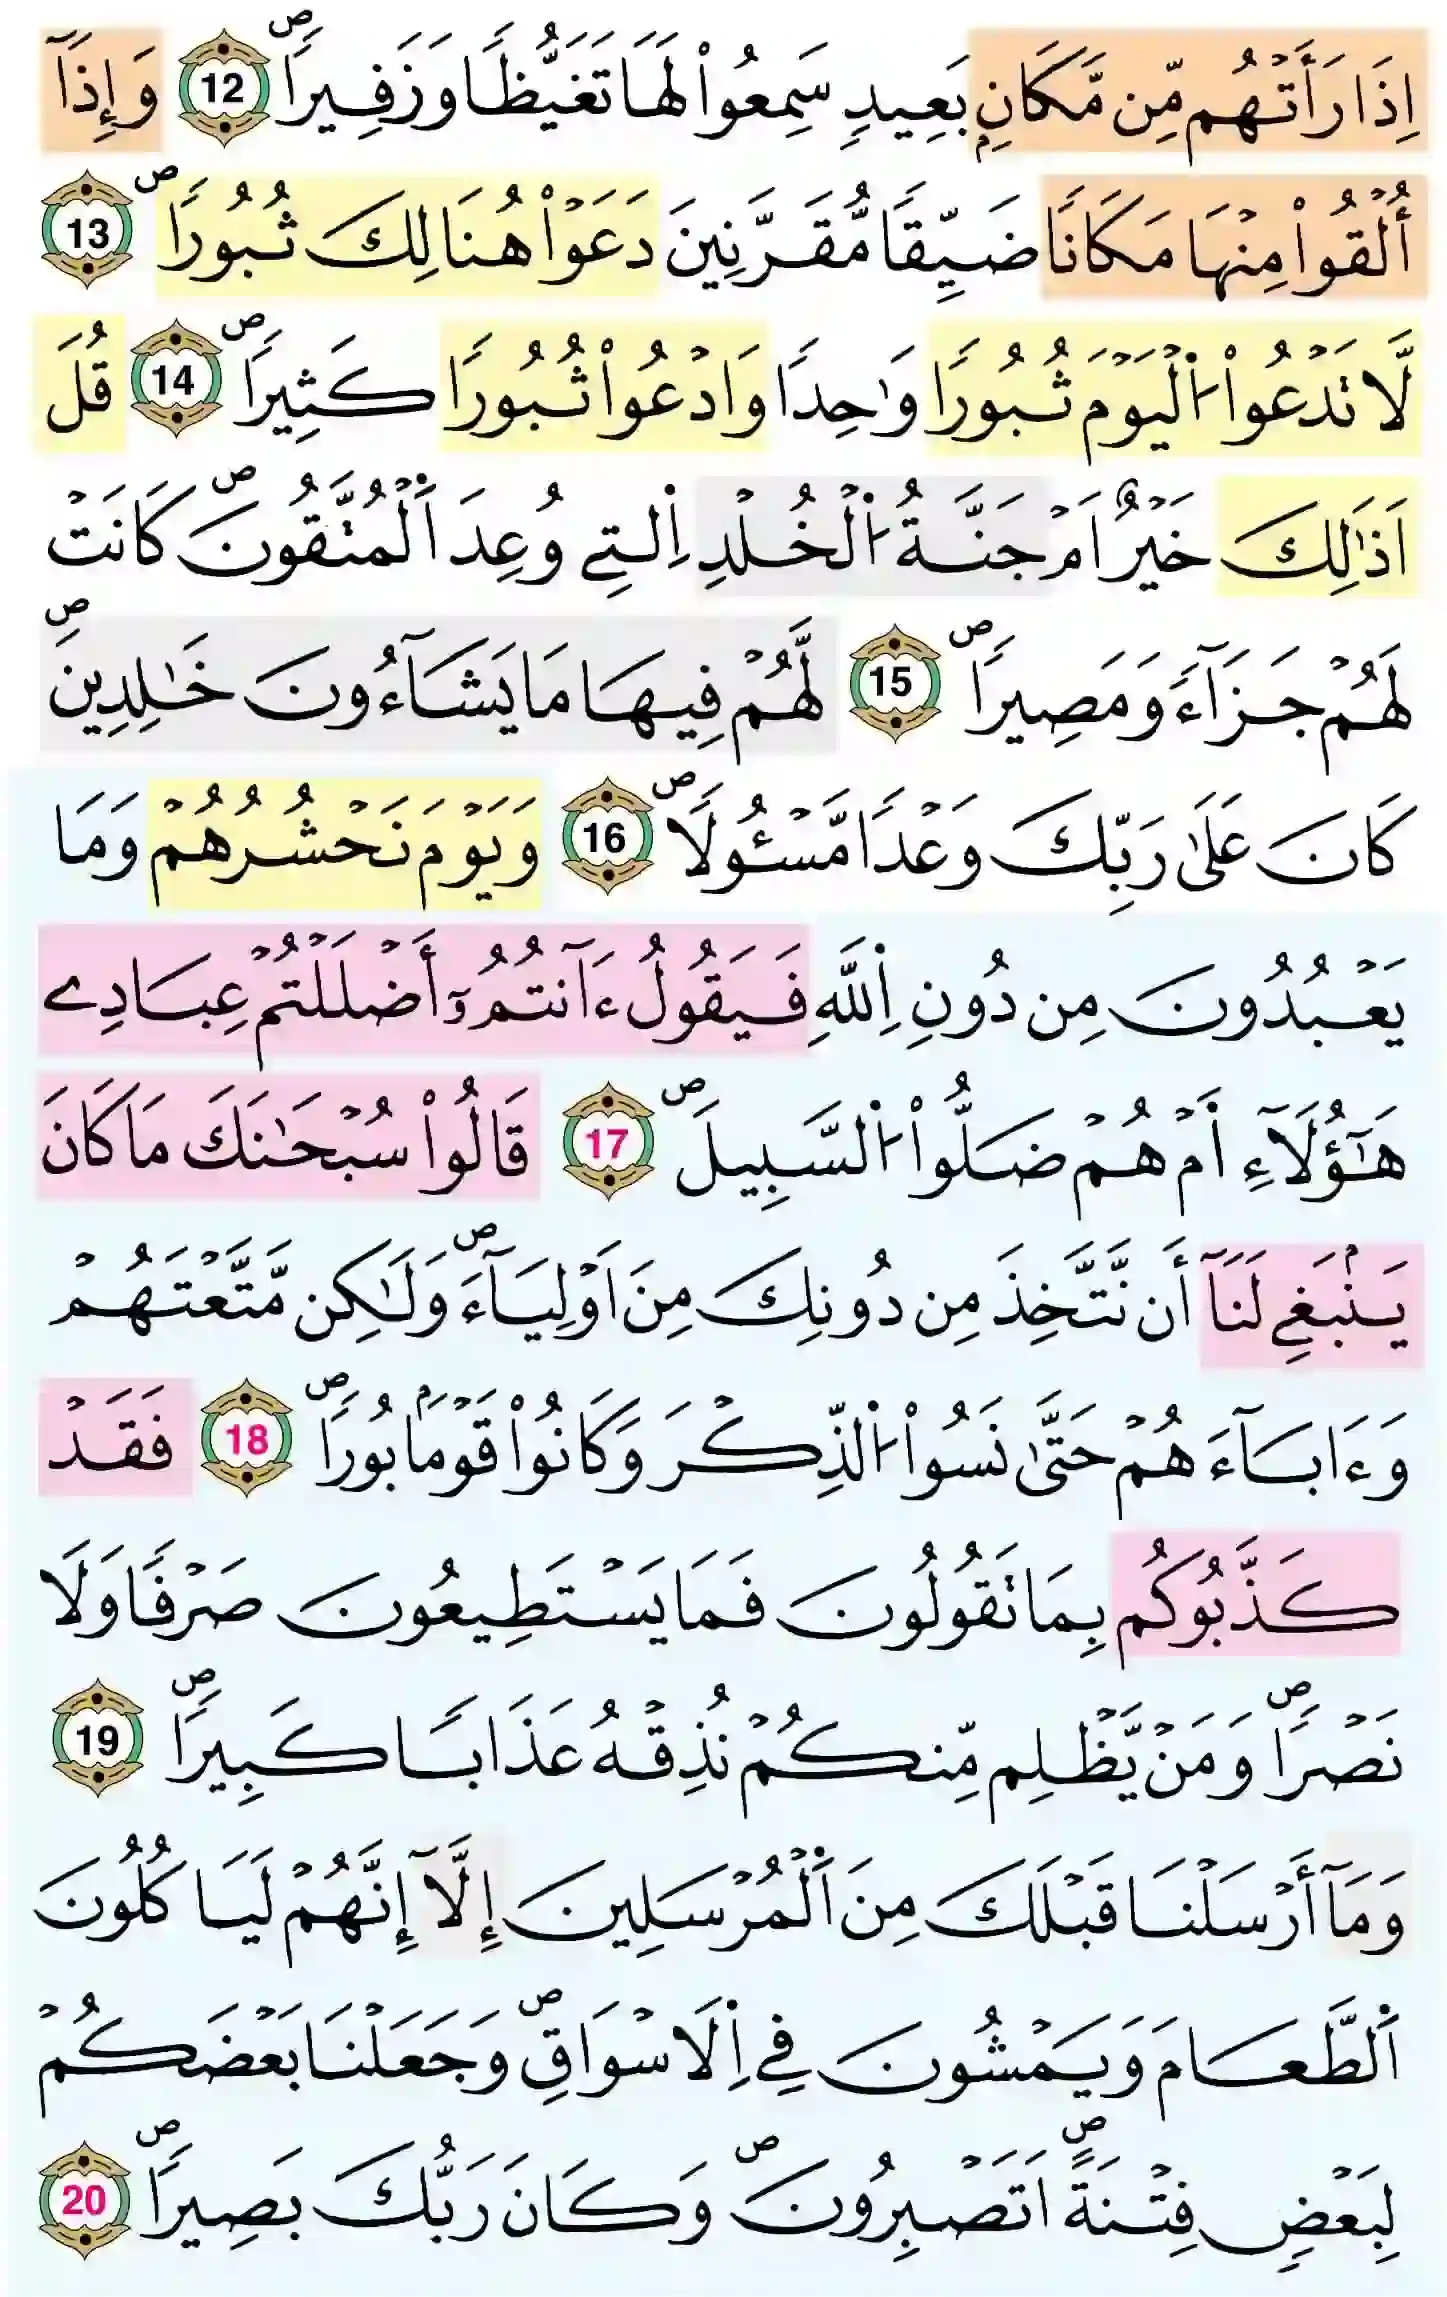 إِذَا رَأَتْهُم مِّن مَّكَانِۢ بَعِيدٖ سَمِعُواْ لَهَا تَغَيُّظٗا وَزَفِيرٗاۖ 12 وَإِذَآ
أُلْقُواْ مِنْهَا مَكَانٗا ضَيِّقٗا مُّقَرَّنِينَ دَعَوْاْ هُنَالِكَ ثُبُورٗاۖ 13
لَّا تَدْعُواْ اُ۬لْيَوْمَ ثُبُورٗا وَٰحِدٗا وَادْعُواْ ثُبُورٗا كَثِيرٗاۖ 14 قُلَ
اَذَٰلِكَ خَيْرٌ اَمْ جَنَّةُ اُ۬لْخُلْدِ اِ۬لتِے وُعِدَ اَ۬لْمُتَّقُونَۖ كَانَتْ
لَهُمْ جَزَآءٗ وَمَصِيرٗاۖ 15 لَّهُمْ فِيهَا مَا يَشَآءُونَ خَٰلِدِينَۖ
كَانَ عَلَىٰ رَبِّكَ وَعْدٗا مَّسْـُٔولٗاۖ 16 وَيَوْمَ نَحْشُرُهُمْ وَمَا
يَعْبُدُونَ مِن دُونِ اِ۬للَّهِ فَيَقُولُ ءَآنتُمُۥٓ أَضْلَلْتُمْ عِبَادِے
هَٰٓؤُلَآءِ أَمْ هُمْ ضَلُّواْ اُ۬لسَّبِيلَۖ 17 قَالُواْ سُبْحَٰنَكَ مَا كَانَ
يَنۢبَغِے لَنَآ أَن نَّتَّخِذَ مِن دُونِكَ مِنَ اَوْلِيَآءَۖ وَلَٰكِن مَّتَّعْتَهُمْ
وَءَابَآءَهُمْ حَتَّىٰ نَسُواْ اُ۬لذِّكْرَ وَكَانُواْ قَوْمَۢا بُورٗاۖ 18 فَقَدْ
كَذَّبُوكُم بِمَا تَقُولُونَ فَمَا يَسْتَطِيعُونَ صَرْفٗا وَلَا
نَصْرٗاۖ وَمَنْ يَّظْلِم مِّنكُمْ نُذِقْهُ عَذَابٗا كَبِيرٗاۖ 19
وَمَآ أَرْسَلْنَا قَبْلَكَ مِنَ اَ۬لْمُرْسَلِينَ إِلَّآ إِنَّهُمْ لَيَاكُلُونَ
اَ۬لطَّعَامَ وَيَمْشُونَ فِے اِ۬لَاسْوَاقِۖ وَجَعَلْنَا بَعْضَكُمْ
لِبَعْضٖ فِتْنَةًۖ اَتَصْبِرُونَۖ وَكَانَ رَبُّكَ بَصِيرٗاۖ 20